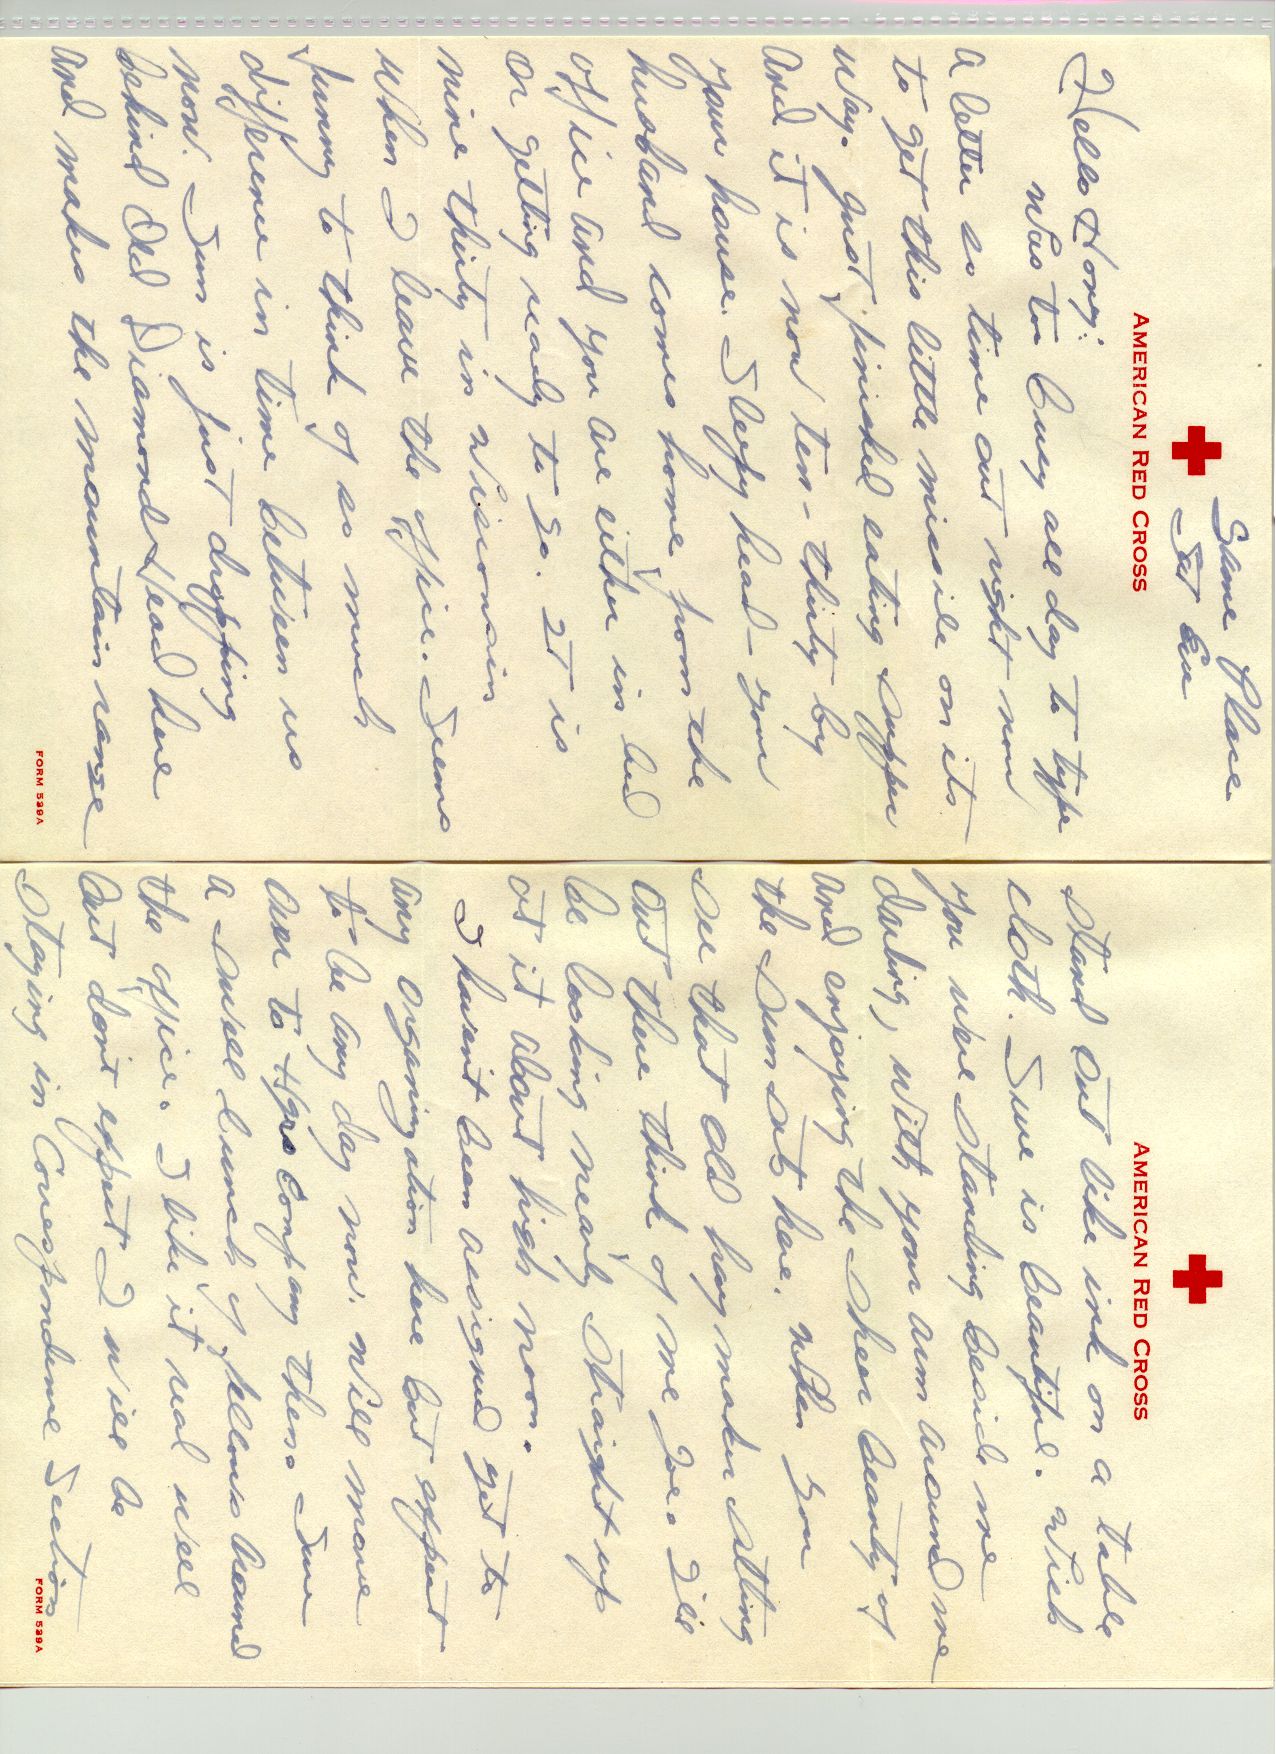 Same Place.
Sat Eve
AMERICAN RED CROSS
Hello Hony:
Was too busy all day to type
a letter so time out right now
to get this little missile on its
way. Just finished eating supper
and it is now ten-thirty by
your house. Sleepy head - your
husband comes home from the
office and you are either in bed
or getting ready to go. It is
nine thirty in Wisconsin
when I leave the office. Seems
funny to think of so much
difference in time between us
now. Sun is just dropping
behind Old Diamond Head here
and makes the mountain range
FORM 539A
AMERICAN RED CROSS
stand out like ink on a table
cloth. Sure is beautiful. Wish
you were standing beside me
darling, with your arm around me
and enjoying the sheer beauty of
the sun sets here. When you
see that old hay maker setting
out there think of me Joe. I'll
be looking nearly straight up
at it about high noon.
I haven't been assigned yet to
any organization here but expect
to be any day now. Will move
over to Hqrs Company then. Sure
a swell bunch of fellows around
the office. I like it real well
but don't expect I will be
staying in Correspondence Section
FORM 539A